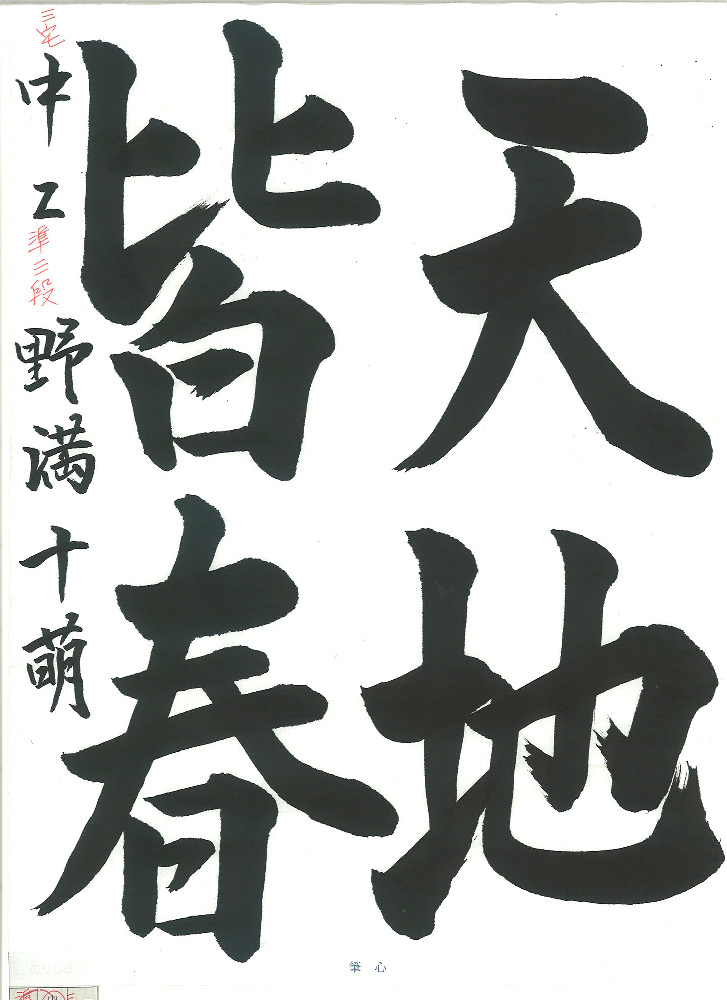 天地
皆春
三宅
中二
準三段
野満十萌
筆心